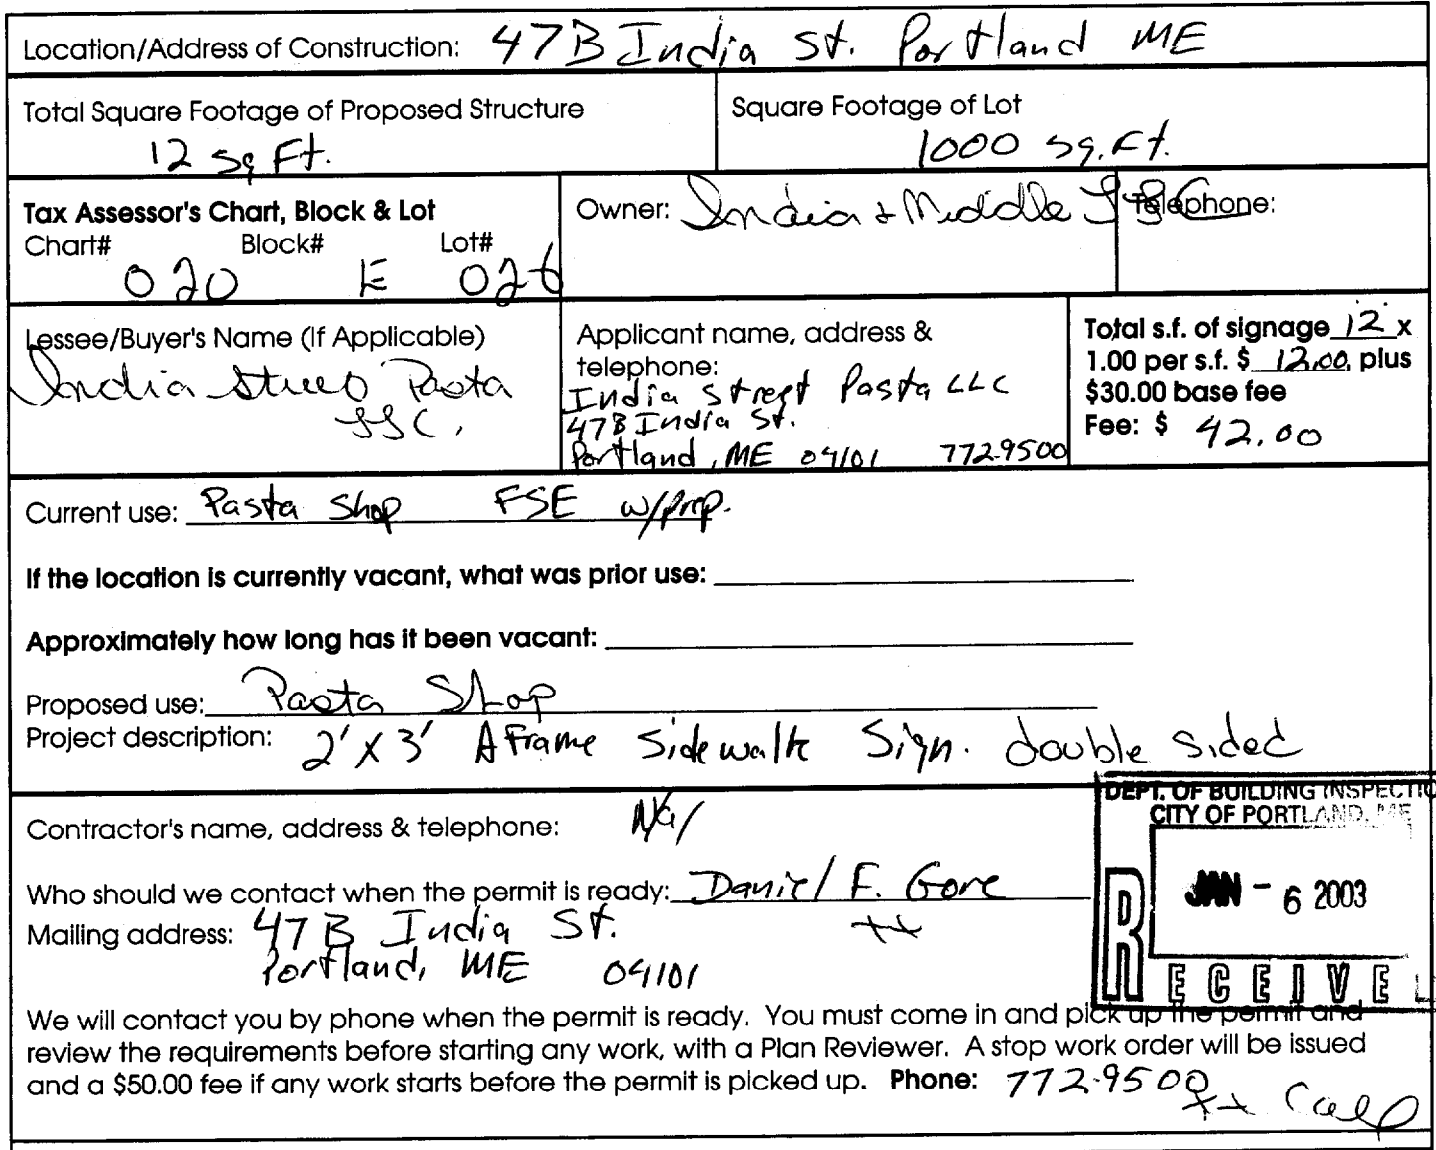 Location/Address of Construction: 47B India St. Portland ME
Total Square Footage of Proposed Structure
12 Sq Ft.
Square Footage of Lot
1000 sq. Ft.
Tax Assessor's Chart, Block & Lot
Chart# Block# Lot#
020 E 026
Owner: India & Middle LLC
Telephone:
Lessee/Buyer's Name (If Applicable)
India Street Pasta
LLC.
Applicant name, address &
telephone:
India Street Pasta LLC
47B India St.
Portland, ME 04101 772-9500
Total s.f. of signage 12 x
1.00 per s.f. $ 12.00, plus
$30.00 base fee
Fee: $ 42.00
Current use: Pasta Shop FSE w/prep.
If the location is currently vacant, what was prior use:
Approximately how long has it been vacant:
Proposed use: Pasta Shop
Project description: 2' x 3' A Frame Sidewalk Sign. double sided
Contractor's name, address & telephone: N/a/
Who should we contact when the permit is ready: Daniel F. Gore
Mailing address: 47 B India St. ++
Portland, ME 04101
DEPT. OF BUILDING INSPECTIO
CITY OF PORTLAND, ME
JAN - 6 2003
RECEIVE
We will contact you by phone when the permit is ready. You must come in and pick up the permit and
review the requirements before starting any work, with a Plan Reviewer. A stop work order will be issued
and a $50.00 fee if any work starts before the permit is picked up. Phone: 772-9500
++ Call